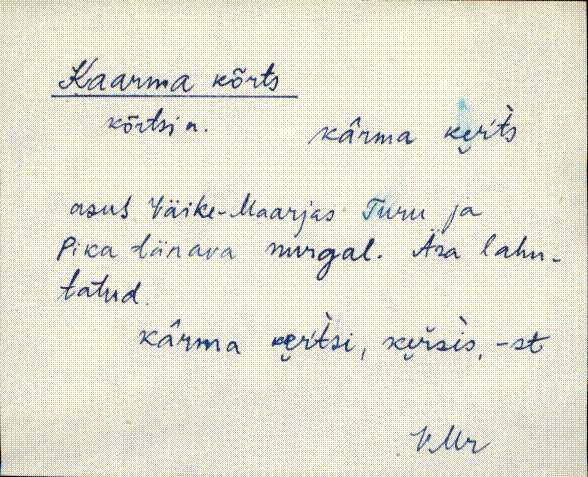 Kaarma kõrts
kõrtsi n.
kârma ke̮r̀t́s
asus Väike-Maarjas Turu ja
Pika tänava nurgal. Ära lahu-
tatud.
kârma ke̮r̀t́si, ke̮ŕsìs, -st
VMr